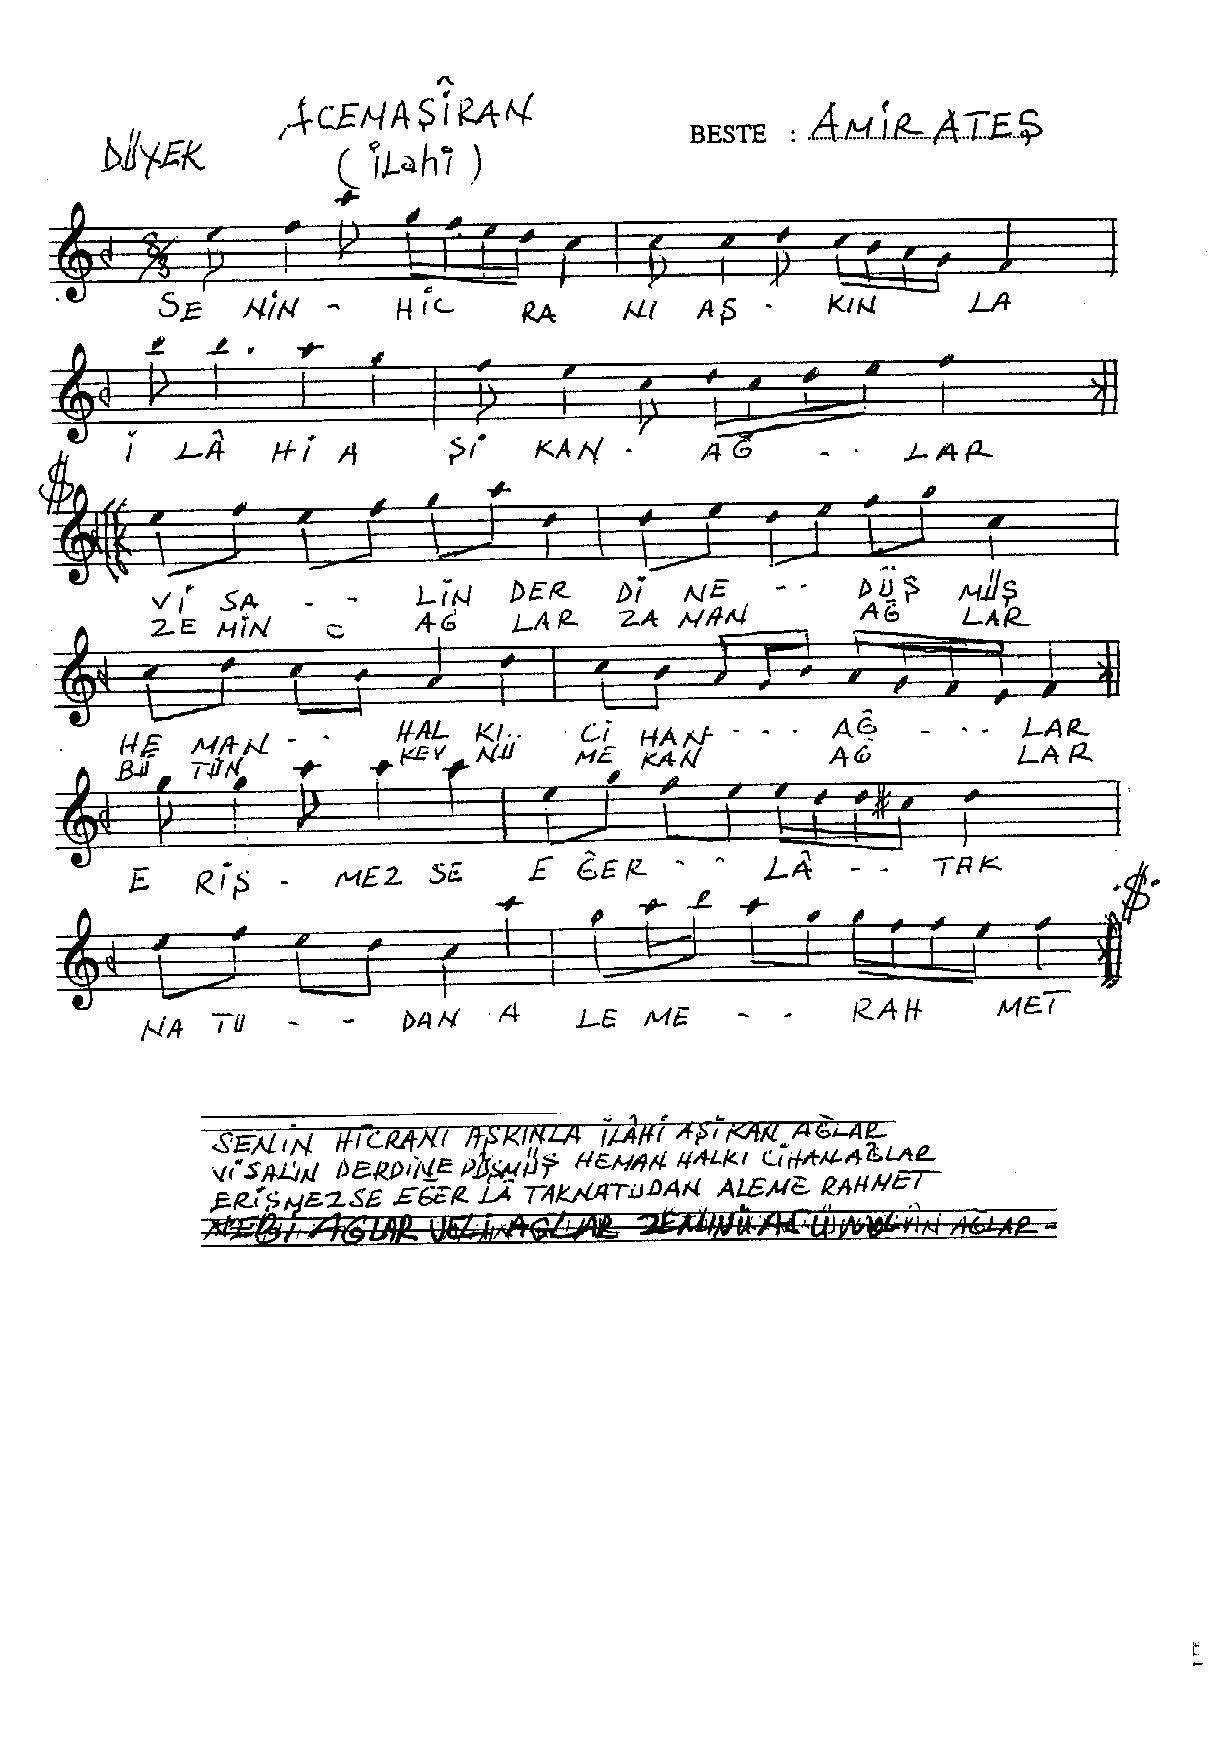 ACEMAŞÎRAN
BESTE : AMİR ATEŞ
DÜYEK
(İLahi)
SE NİN - HİC RA NI AŞ - KIN LA
İ LÂ Hİ A Şİ KAN - AĞ - - LAR
Vİ SA - - LİN DER Dİ NE - - DÜŞ MÜŞ
ZE MİN AĞ LAR ZA MAN AĞ LAR
HE MAN - - HAL KI.. Cİ HAN - - - AĞ - - - LAR
BÜ TÜN KEV NÜ ME KAN AĞ LAR
E RİŞ - MEZ SE E ĞER - - LÂ - - TAK
NA TU - - DAN A LE ME - - RAH MET
SENİN HİCRANI AŞKINLA İLÂHİ AŞİKAN AĞLAR
VİSALİN DERDİNE DÜŞMÜŞ HEMAN HALKI CİHAN AĞLAR
ERİŞMEZSE EĞER LÂ TAKNATUDAN ALEME RAHMET
AĞLAR VELİ AĞLAR AĞLAR -